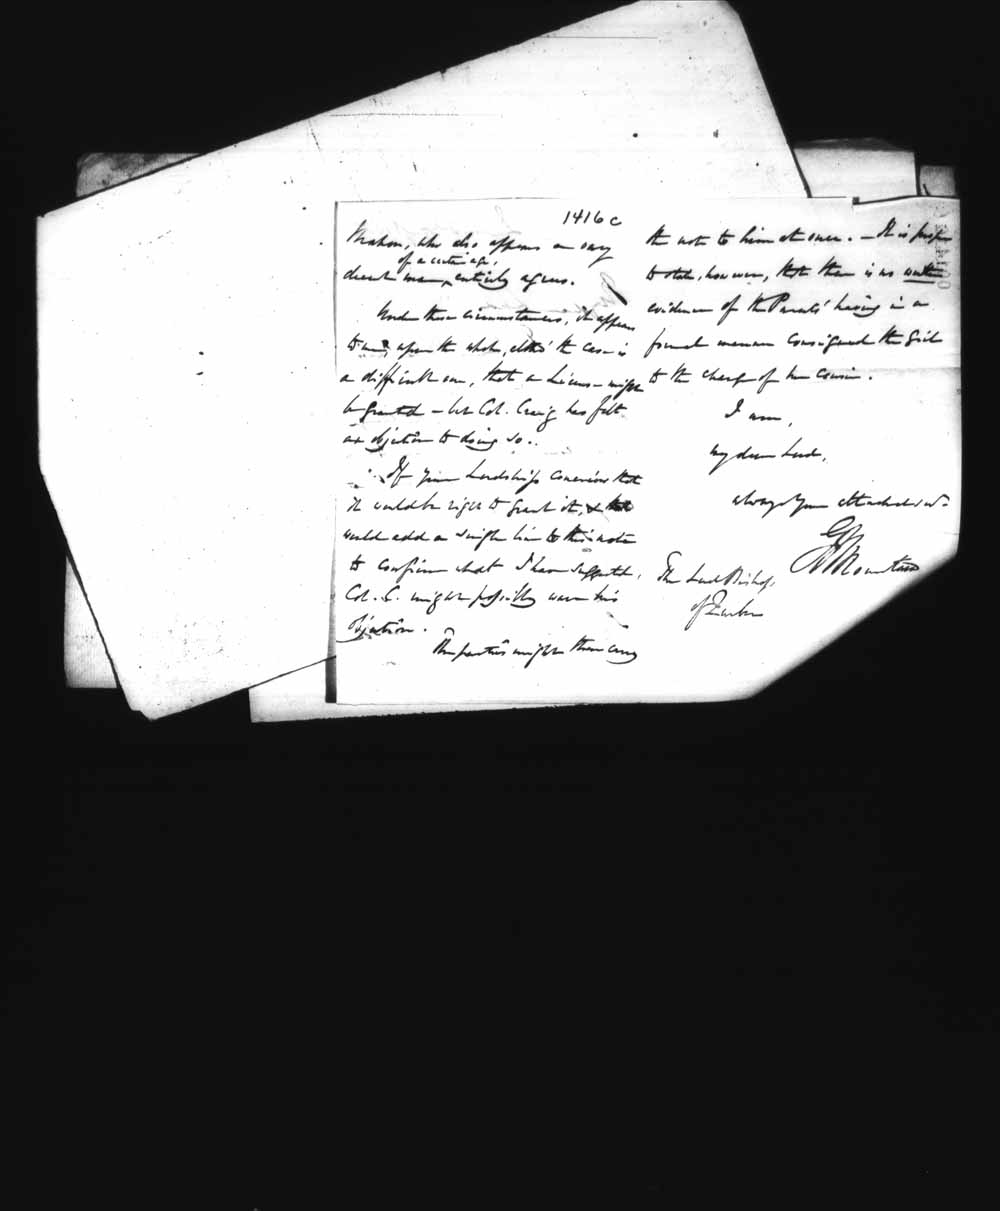 1416c
Mahon, who also appears a very
of a certain age,
decent man, entirely agrees.
Under these circumstances, it appears
to me, upon the whole, altho' the case is
a difficult one, that a License might
be granted – but Col. Craig has felt
an objection to doing so.
If your Lordship conceives that
it would be right to grant it, &
would add a single line to this note
to confirm what I have suggested,
Col. C. might possibly wave his
objection.
The parties might then carry
the note to him at once. – It is proper
to state, however, that there is no written
evidence of the Parents' having in a
formal manner consigned the Girl
to the charge of her cousin.
I am,
my dear Lord,
always your attached
G J Mountain
The Lord Bishop
of Quebec